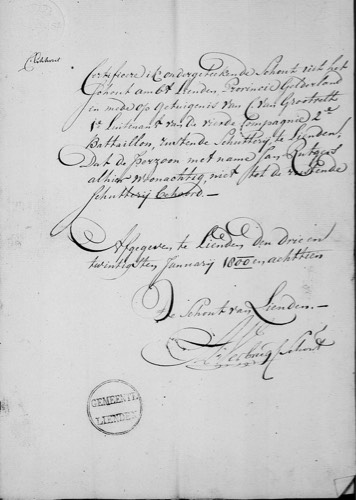 Certifiere ik ondergeteekende Schout van het
Schout ambt Lienden Provincie Gelderland
en mede op getuigenis van C. van Grootveld
1e Luitenant van de vierde Compagnie 2de
Battaillon, rustende Schutterij te Lienden,
Dat de perzoon met name Jan Rutgers
alhier woonachtig, niet tot de rustende
Schutterij behoord.—
Afgegeven te Lienden Den drie en
twintigsten Januarij 1800 en achttien
De Schout van Lienden.—
Schout
GEMEENTE
LIENDEN